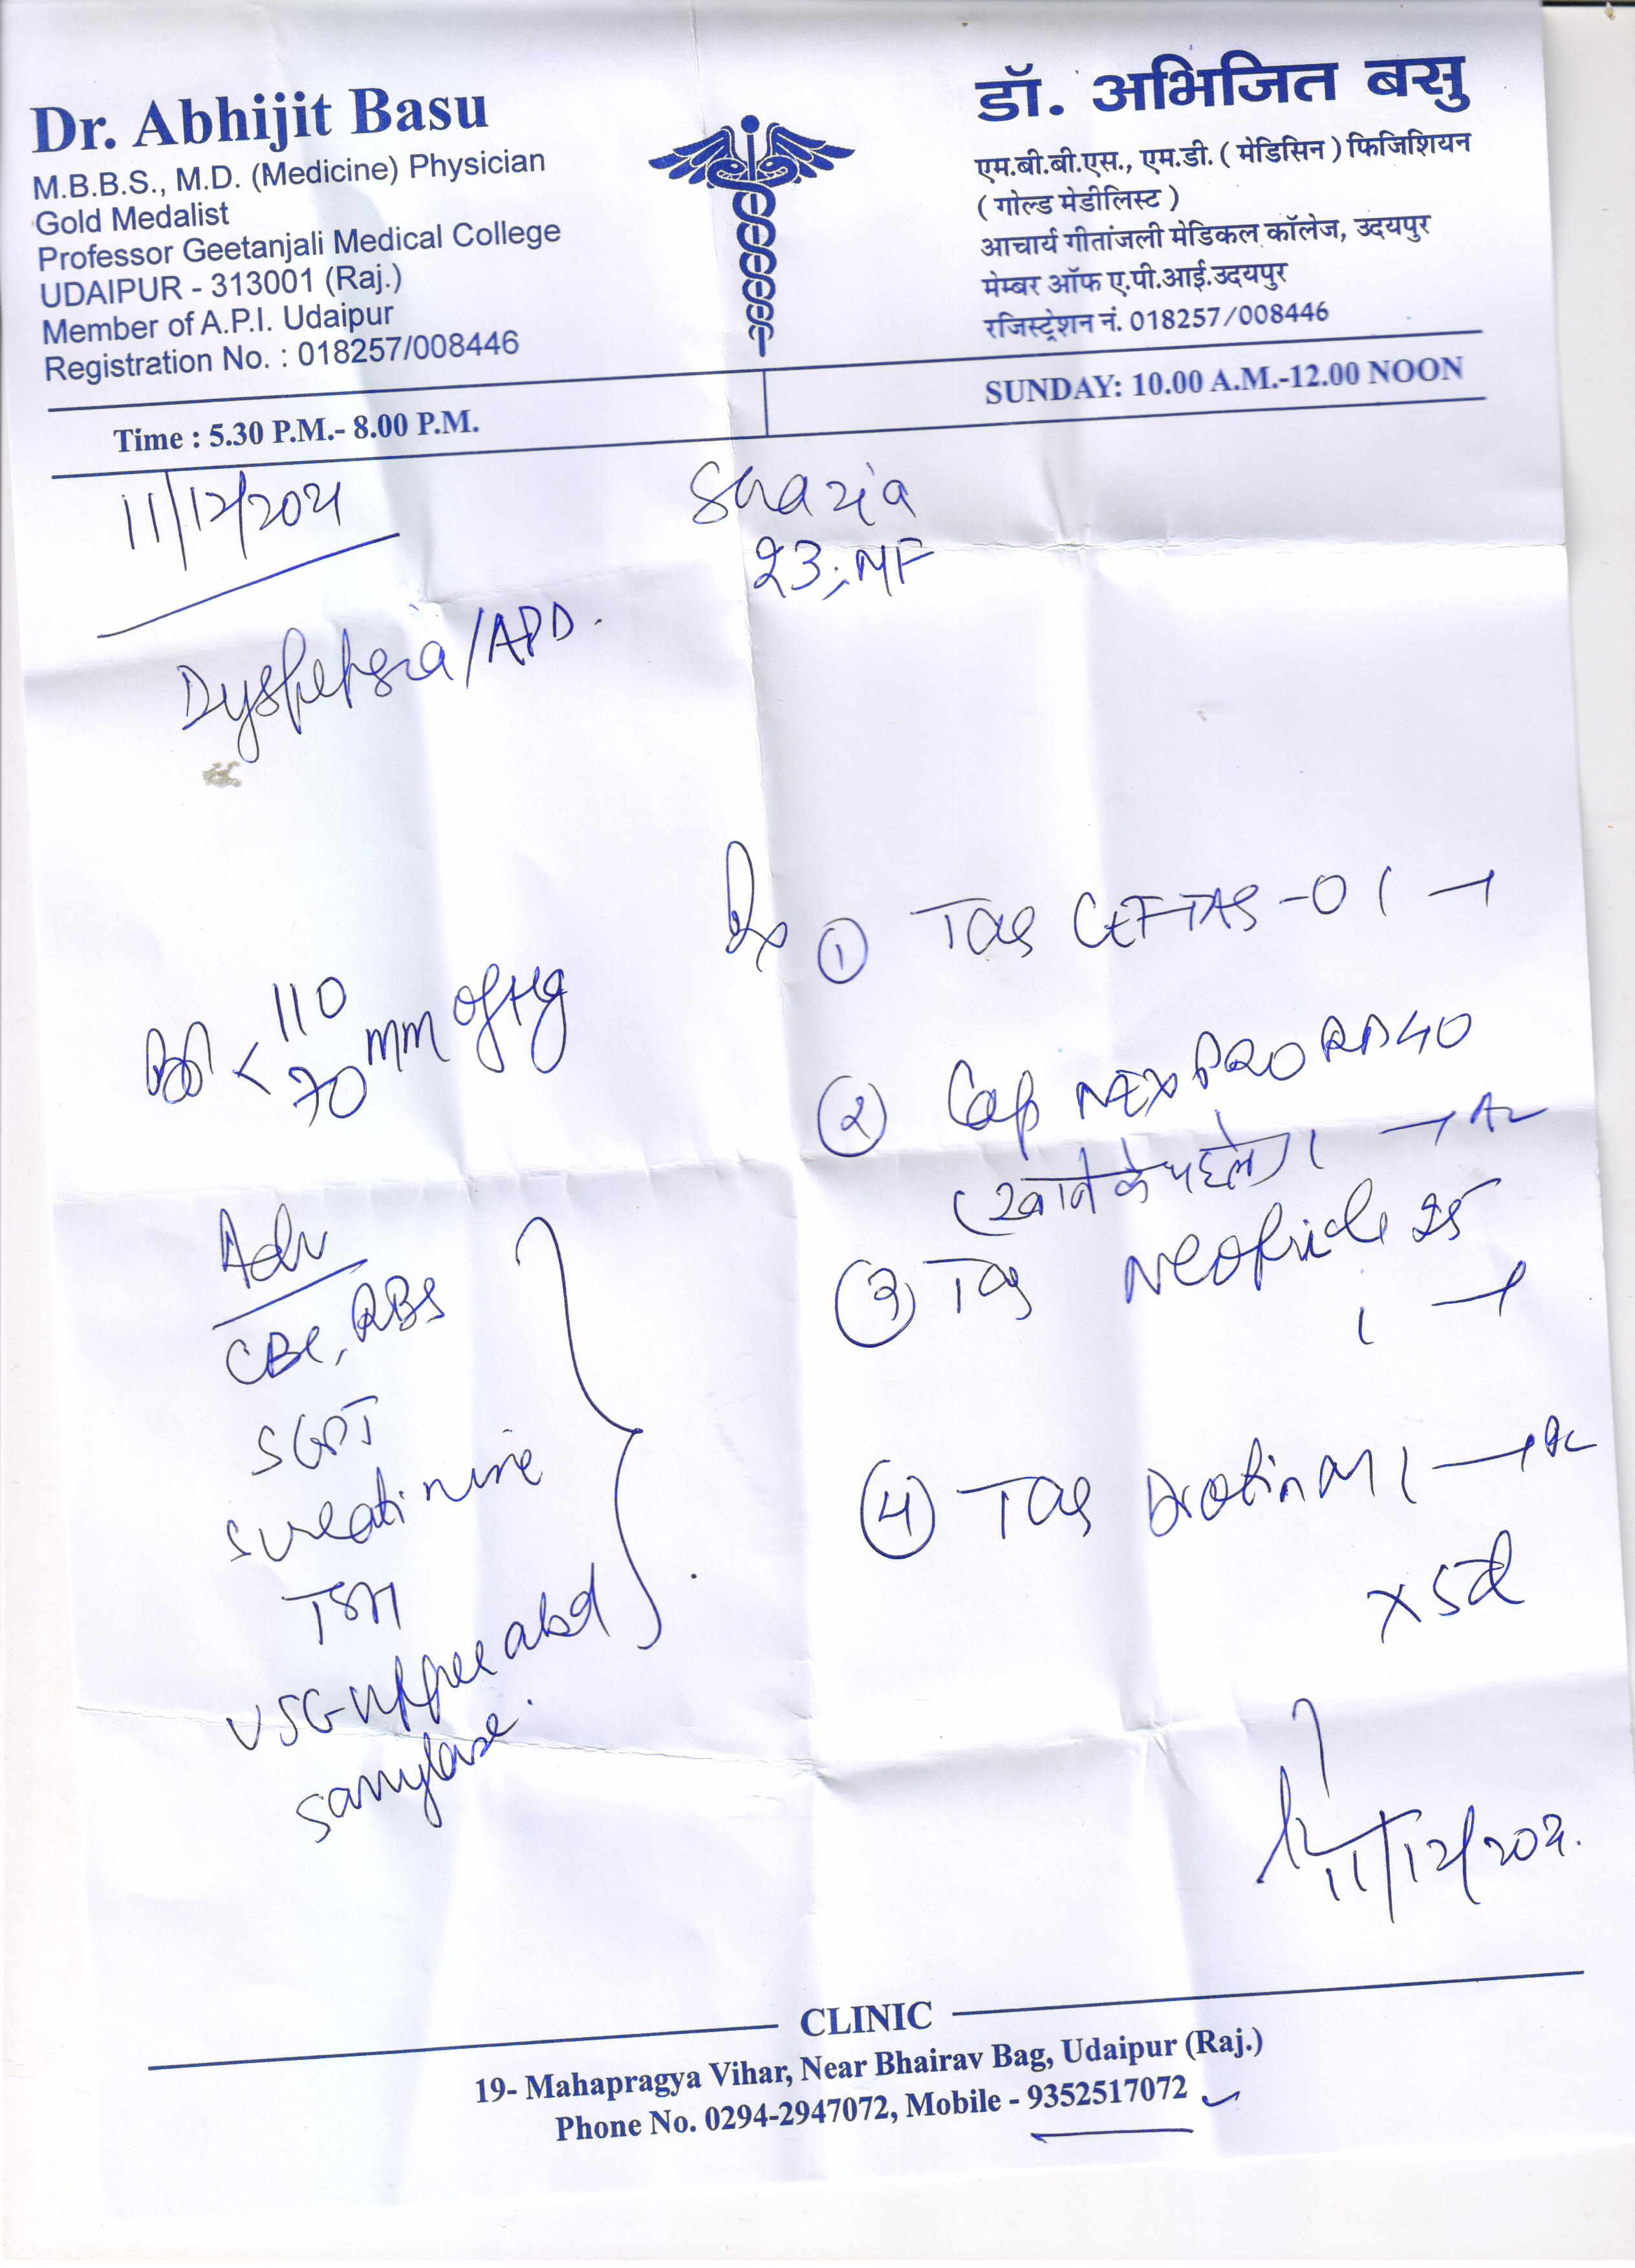 Dr. Abhijit Basu
M.B.B.S., M.D. (Medicine) Physician
Gold Medalist
Professor Geetanjali Medical College
UDAIPUR - 313001 (Raj.)
Member of A.P.I. Udaipur
Registration No. : 018257/008446
डॉ. अभिजित बसु
एम.बी.बी.एस., एम.डी. ( मेडिसिन ) फिजिशियन
( गोल्ड मेडीलिस्ट )
आचार्य गीतांजली मेडिकल कॉलेज, उदयपुर
मेम्बर ऑफ ए.पी.आई.उदयपुर
रजिस्ट्रेशन नं. 018257/008446
Time : 5.30 P.M.- 8.00 P.M.
SUNDAY: 10.00 A.M.-12.00 NOON
11/12/2021
Shazia
23, MF
Dyspepsia/APD.
Rx ① Tab CEFTAS-O 1 – 1
BP < 110
70 mm of Hg
② Cap NEXPRO RD 40
(खाने के पहले) 1
③ Tab Neopride 25
1 – 1
④ Tab Drotin M 1
x 5d
Adv
CBC, RBS
SGPT
S creatinine
TSH
USG upper abd
S amylase.
11/12/2021.
CLINIC
19- Mahapragya Vihar, Near Bhairav Bag, Udaipur (Raj.)
Phone No. 0294-2947072, Mobile - 9352517072